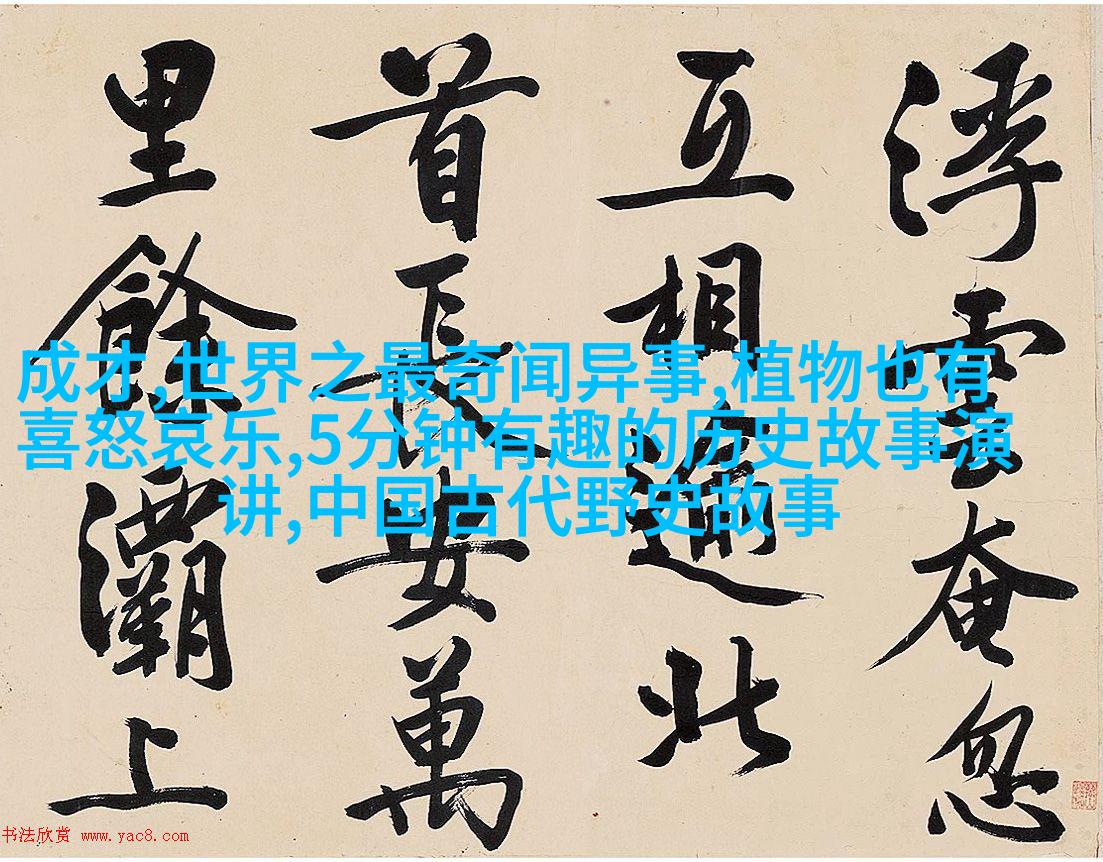 浮雲奄忽
互相逾北
首長安萬
里餘灞上
成才,世界之最奇闻异事,植物也有
喜怒哀乐,5分钟有趣的历史故事演
讲,中国古代野史故事
书法欣赏 www.yac8.com